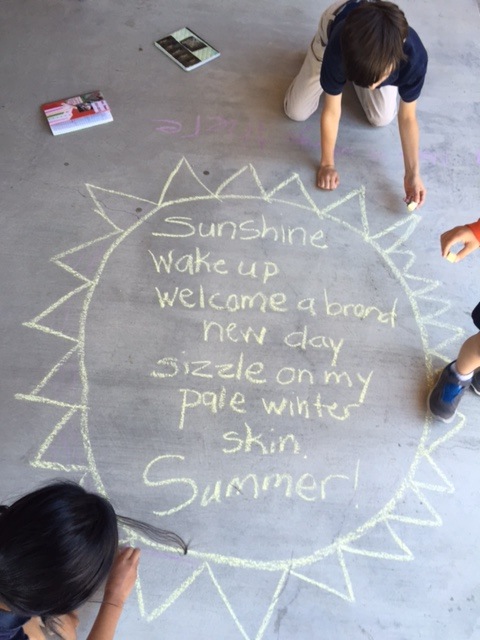 Sunshine
wake up
welcome a brand
new day
sizzle on my
pale winter
skin.
Summer!